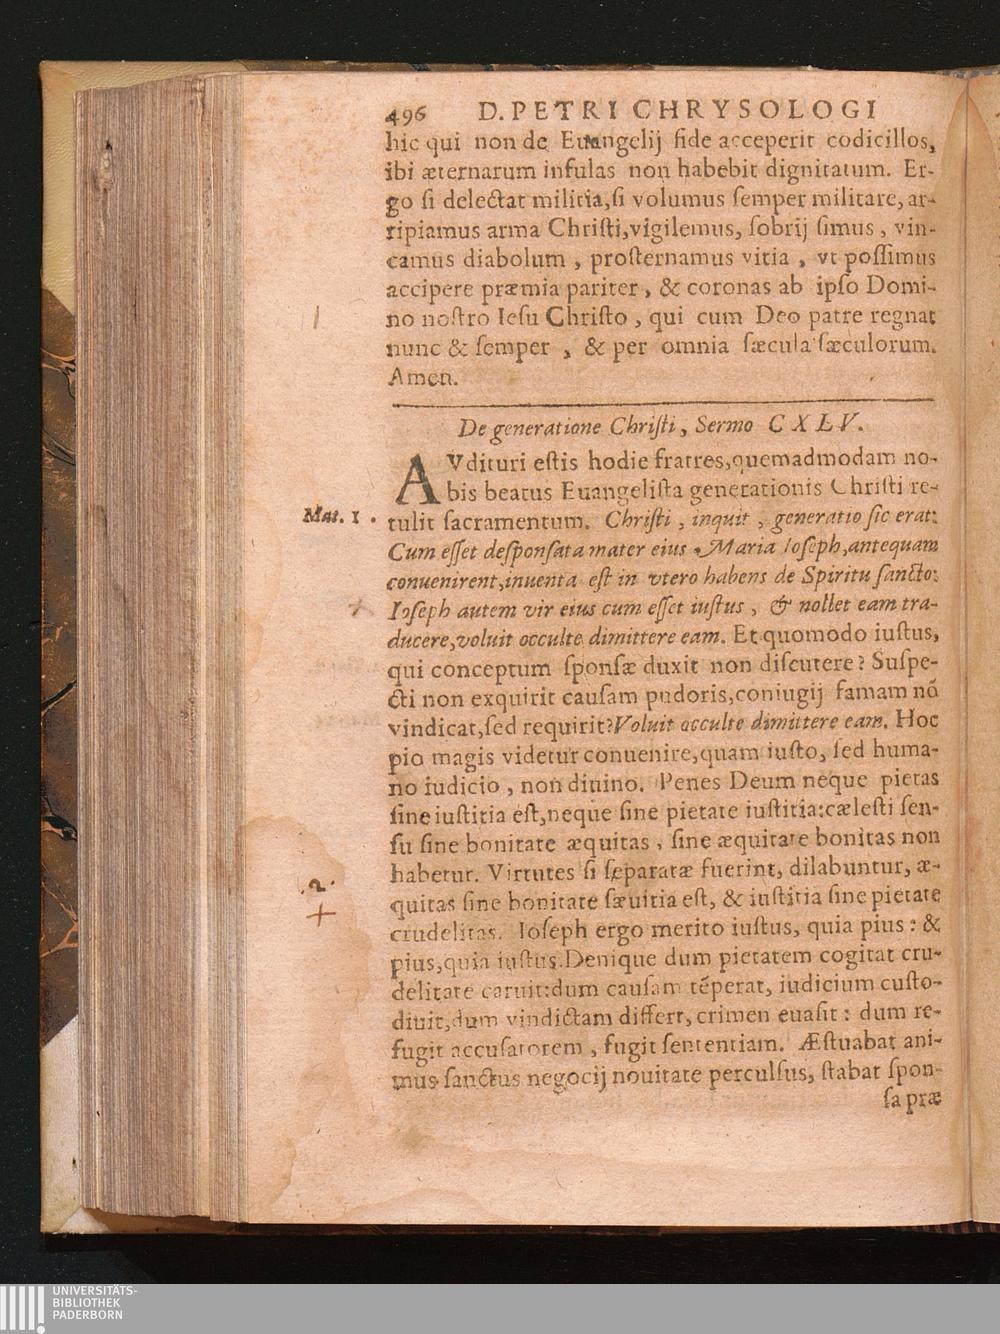 496 D. PETRI CHRYSOLOGI
hic qui non de Euangelij fide acceperit codicillos,
ibi æternarum infulas non habebit dignitatum. Er-
go ſi delectat militia,ſi volumus ſemper militare, ar-
ripiamus arma Chriſti,vigilemus, ſobrij ſimus, vin-
camus diabolum, proſternamus vitia, vt poſſimus
accipere præmia pariter, & coronas ab ipſo Domi-
no noſtro Ieſu Chriſto, qui cum Deo patre regnat
nunc & ſemper, & per omnia ſæcula ſæculorum.
Amen.
De generatione Chriſti, Sermo CXLV.
AVdituri eſtis hodie fratres,quemadmodam no-
bis beatus Euangeliſta generationis Chriſti re-
Mat. 1.
tulit ſacramentum. Chriſti, inquit, generatio ſic erat:
Cum eſſet deſponſata mater eius Maria Ioſeph,antequam
conuenirent,inuenta eſt in vtero habens de Spiritu ſancto:
Ioſeph autem vir eius cum eſſet iuſtus, & nollet eam tra-
ducere,voluit occulte dimittere eam. Et quomodo iuſtus,
qui conceptum ſponſæ duxit non diſcutere? Suſpe-
cti non exquirit cauſam pudoris,coniugij famam nõ
vindicat,ſed requirit?Voluit occulte dimittere eam. Hoc
pio magis videtur conuenire,quam iuſto, ſed huma-
no iudicio, non diuino. Penes Deum neque pietas
ſine iuſtitia eſt,neque ſine pietate iuſtitia:cæleſti ſen-
ſu ſine bonitate æquitas, ſine æquitate bonitas non
habetur. Virtutes ſi ſeparatæ fuerint, dilabuntur, æ-
.2.
quitas ſine bonitate ſæuitia eſt, & iuſtitia ſine pietate
crudelitas. Ioſeph ergo merito iuſtus, quia pius: &
pius,quia iuſtus.Denique dum pietatem cogitat cru-
delitate caruit:dum cauſam tẽperat, iudicium cuſto-
diuit,dum vindictam differt, crimen euaſit: dum re-
fugit accuſatorem, fugit ſententiam. Æſtuabat ani-
mus ſanctus negocij nouitate perculſus, ſtabat ſpon-
ſa præ
UNIVERSITÄTS-
BIBLIOTHEK
PADERBORN